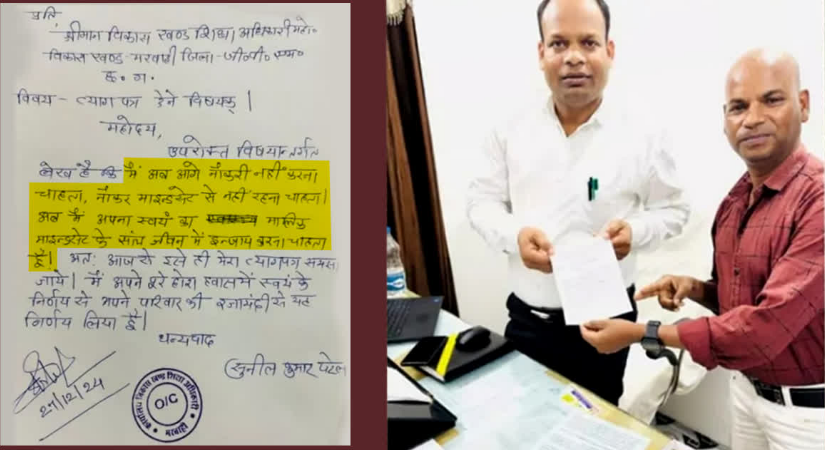 प्रति
श्रीमान विकास खण्ड शिक्षा अधिकारी महो०
विकास खण्ड-मरवाही जिला-जी०पी०एम०
छ. ग.
विषय - त्याग पत्र देने विषयक् |
महोदय,
उपरोक्त विषयान्तर्गत
लेख है कि मैं अब आगे नौकरी नहीं करना
चाहता, नौकर माइन्डसेट से नहीं रहना चाहता|
अब मैं अपना स्वयं का मालिक
माइन्डसेट के साथ जीवन में इन्जाय करना चाहता
हूँ| अतः आज से इसे ही मेरा त्यागपत्र समझा
जाये| मैं अपने पूरे होश हवास में स्वयं के
निर्णय से अपने परिवार की रजामंदी से यह
निर्णय लिया है|
धन्यवाद
सुनील कुमार पटेल
27/12/24
कार्यालय विकास खण्ड शिक्षा अधिकारी
O/C
मरवाही